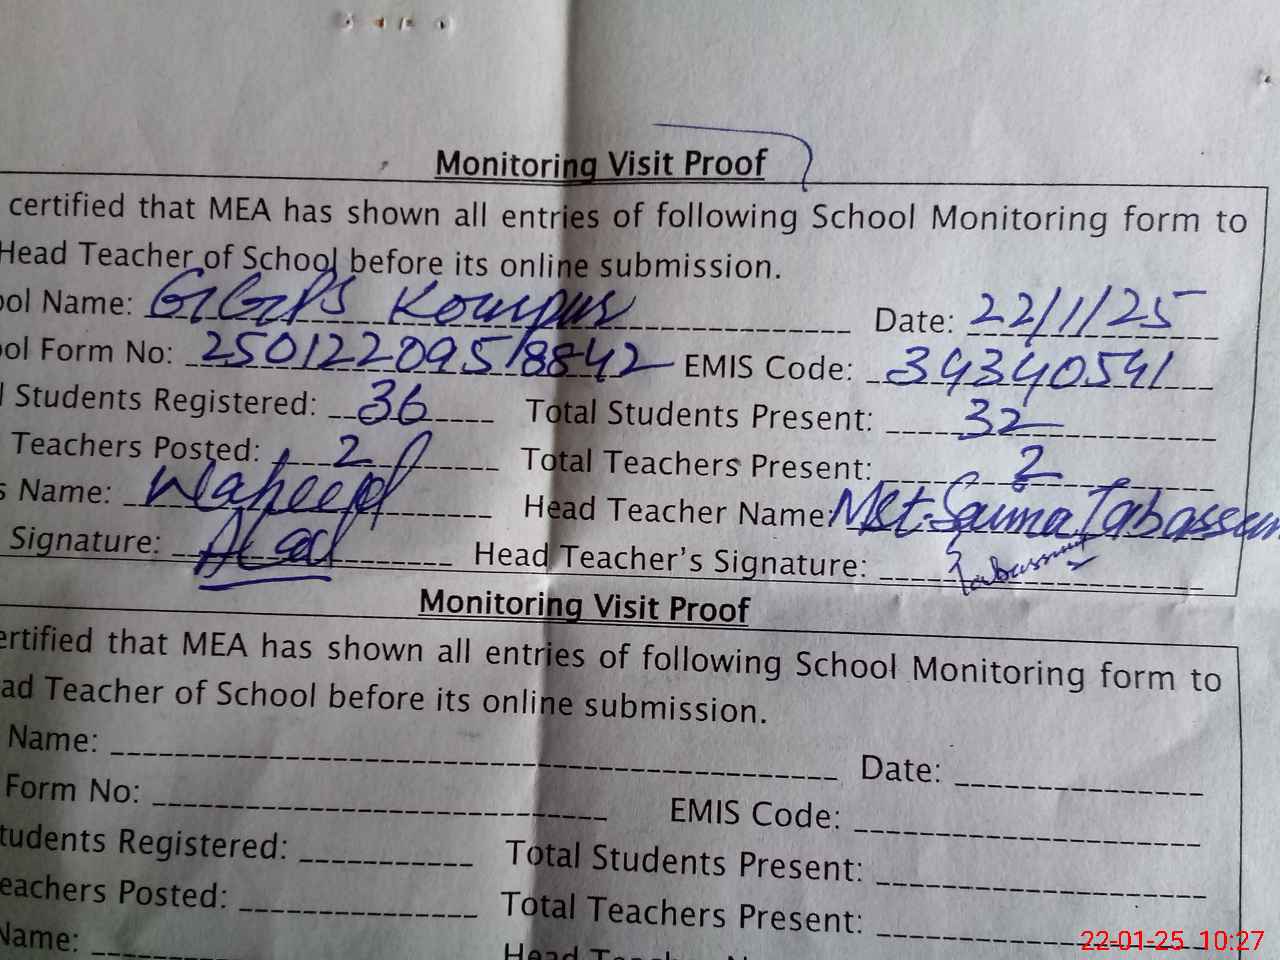 Monitoring Visit Proof
certified that MEA has shown all entries of following School Monitoring form to
Head Teacher of School before its online submission.
ool Name: GGPS Kourpur Date: 22/1/25
ool Form No: 25012209518842 EMIS Code: 34340541
l Students Registered: 36 Total Students Present: 32
Teachers Posted: 2 Total Teachers Present: 2
s Name: Waheed Head Teacher Name: Mst. Saima Tabassum
Signature: Head Teacher's Signature: Tabassum
Monitoring Visit Proof
ertified that MEA has shown all entries of following School Monitoring form to
ad Teacher of School before its online submission.
Name: Date:
Form No: EMIS Code:
tudents Registered: Total Students Present:
eachers Posted: Total Teachers Present:
Name: Head Teacher
22-01-25 10:27